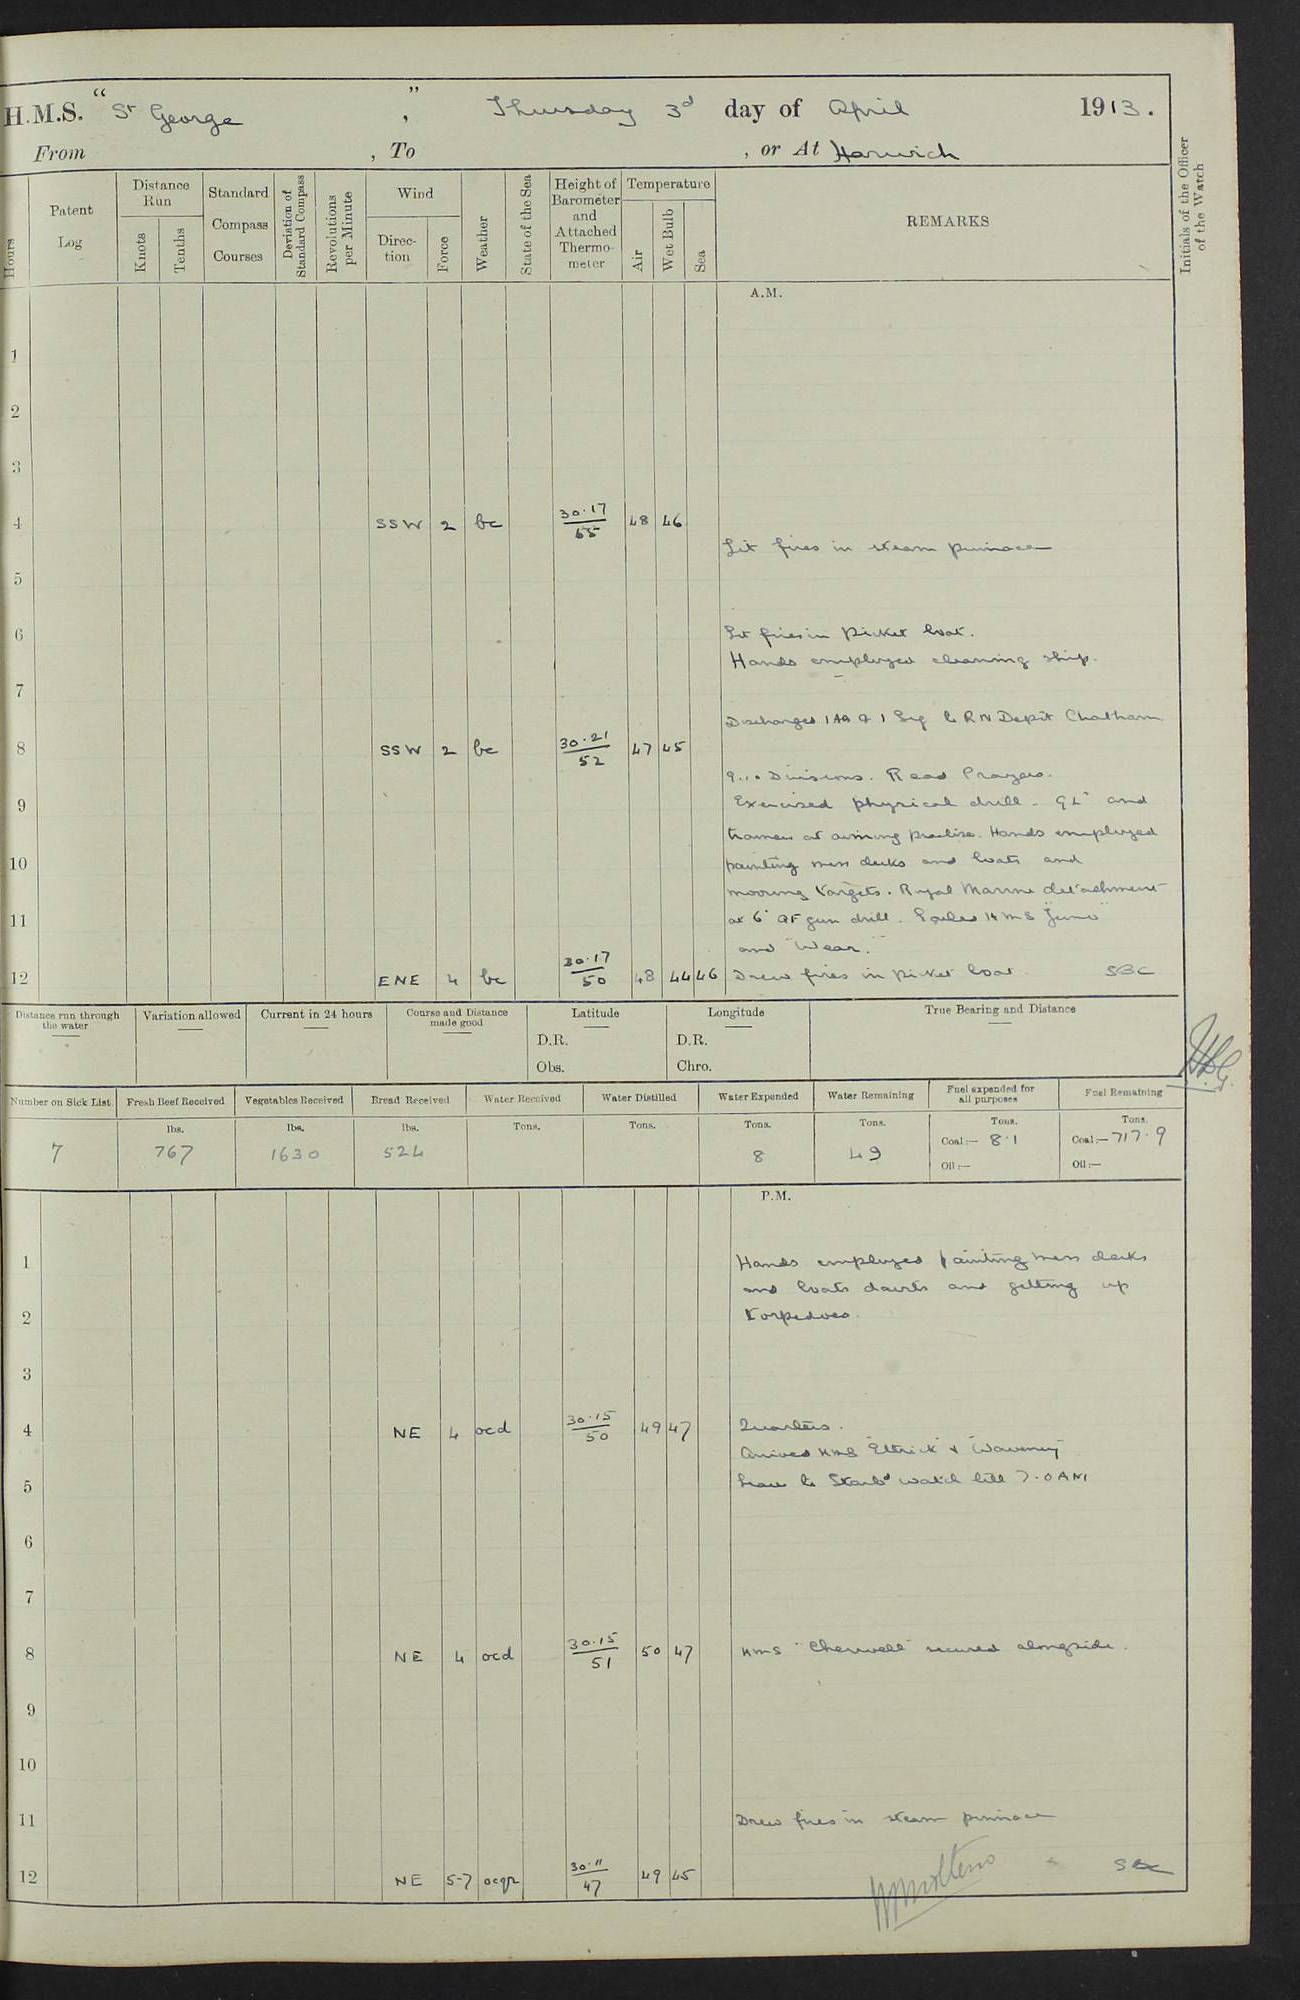 H.M.S. “ St George ” , Thursday 3d day of April 1913.
From , To , or At Harwich
Hours
Patent Log
Distance Run
Knots
Tenths
Standard Compass Courses
Deviation of Standard Compass
Revolutions per Minute
Wind
Direction
Force
Weather
State of the Sea
Height of Barometer and Attached Thermometer
Temperature
Air
Wet Bulb
Sea
REMARKS
Initials of the Officer of the Watch
A.M.
1
2
3
4 SSW 2 bc 30.17/65 48 46
Lit fires in steam pinnace
5
6 Lit fires in Picket boat.
Hands employed cleaning ship.
7
Discharged 1 AB & 1 Sig to RN Depôt Chatham
8 SSW 2 bc 30.21/52 47 45
9.10 Divisions. Read Prayers.
9 Exercised physical drill - GLs and
trainers at aiming practise. Hands employed
10 painting mess decks and boats and
mooring targets. Royal Marine detachment
11 at 6" QF gun drill. Sailed HMS "Juno"
and "Wear."
12 ENE 4 bc 30.17/50 48 44 46 Drew fires in picket boat SBC
Distance run through the water
Variation allowed
Current in 24 hours
Course and Distance made good
Latitude
D.R.
Obs.
Longitude
D.R.
Chro.
True Bearing and Distance
Number on Sick List
Fresh Beef Received
Vegetables Received
Bread Received
Water Received
Water Distilled
Water Expended
Water Remaining
Fuel expended for all purposes
Fuel Remaining
lbs. lbs. lbs. Tons. Tons. Tons. Tons. Tons. Tons.
7 767 1630 524 8 49 Coal:— 8.1 Coal:— 717.9
Oil:— Oil:—
P.M.
1 Hands employed painting mess decks
and boats davits and getting up
2 torpedoes.
3
4 NE 4 ocd 30.15/50 49 47 Quarters.
Arived HMS "Ettrick" & "Waveney"
5 Leave to Starbd watch till 7.0 AM
6
7
8 NE 4 ocd 30.15/51 50 47 HMS "Cherwell" secured alongside.
9
10
11 Drew fires in steam pinnace
12 NE 5-7 ocqr 30.11/47 49 45 SBC